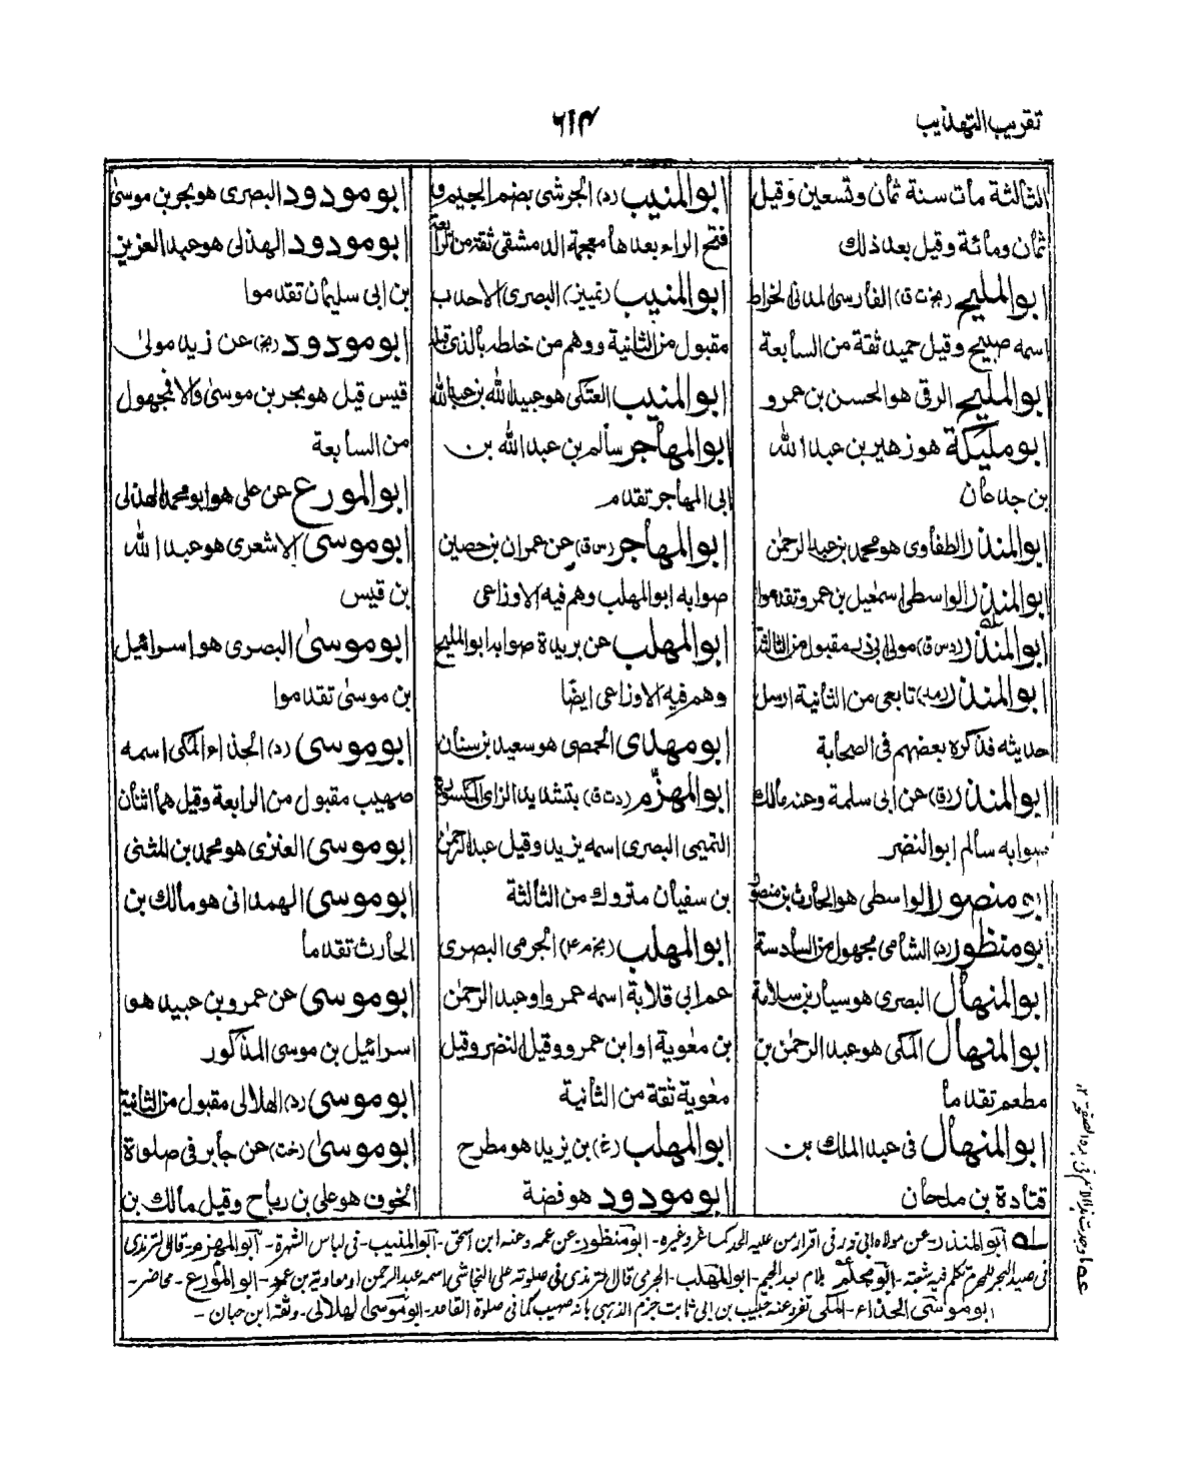 تقريب التهذيب
٦١٣
الثالثة مات سنة ثمان وتسعين وقيل
ثمان ومائة وقيل بعد ذلك
ابو المليح (بخ ت ق) الفارسى المدنى الخراط
اسمه صبيح وقيل حميد ثقة من السابعة
ابو المليح الرقى هو الحسن بن عمرو
ابو مليكة هو زهير بن عبد الله
بن جدعان
ابو المنذر الطفاوى هو محمد بن عبد الرحمٰن
ابو المنذر الواسطى اسمٰعيل بن عمر وتقدموا
ابو المنذر (د س ق) مولى ابى ذر مقبول من الثالثة
ابو المنذر (مد) تابعى من الثانية ارسل
حديثه فذكره بعضهم فى الصحابة
ابو المنذر (ق) عن ابى سلمة وعنه مالك
صوابه سالم ابو النضر
ابو منصور الواسطى هو الحارث بن منصور
ابو منظور (د) الشامى مجهول من السادسة
ابو المنهال البصرى هو سيار بن سلامة
ابو المنهال المكى هو عبد الرحمٰن بن
مطعم تقدما
ابو المنهال فى عبد الملك بن
قتادة بن ملحان
ابو المنيب (د) الجرشى بضم الجيم و
فتح الراء بعدها معجمة الدمشقى ثقة من الرابعة
ابو المنيب (تمييز) البصرى الاحدب
مقبول من الثانية ووهم من خلطه بالذى قبله
ابو المنيب العتكى هو عبيد الله بن عبد الله
ابو المهاجر سالم بن عبد الله بن
ابى المهاجر تقدم
ابو المهاجر (س ق) عن عمران بن حصين
صوابه ابو المهلب وهم فيه الاوزاعى
ابو المهلب عن بريدة صوابه ابو المليح
وهم فيه الاوزاعى ايضًا
ابو مهدى الحمصى هو سعيد بن سنان
ابو المهزّم (د ت ق) بتشديد الزاى المكسورة
التميمى البصرى اسمه يزيد وقيل عبد الرحمٰن
بن سفيان متروك من الثالثة
ابو المهلب (بخ م ٤) الجرمى البصرى
عم ابى قلابة اسمه عمرو او عبد الرحمٰن
بن معٰوية او ابن عمرو وقيل النضر وقيل
معٰوية ثقة من الثانية
ابو المهلب (غ) بن يزيد هو مطرح
ابو مودود هو فضة
ابو مودود البصرى هو بحر بن موسىٰ
ابو مودود الهذلى هو عبد العزيز
بن ابى سليمان تقدموا
ابو مودود (بخ) عن زيد مولىٰ
قيس قيل هو بحر بن موسىٰ والا فمجهول
من السابعة
ابو المورع عن على هو ابو محمد الهذلى
ابو موسى الاشعرى هو عبد الله
بن قيس
ابو موسىٰ البصرى هو اسرائيل
بن موسىٰ تقدموا
ابو موسى (د) الحذاء المكى اسمه
صهيب مقبول من الرابعة وقيل هما اثنان
ابو موسى العنزى هو محمد بن المثنى
ابو موسى الهمدانى هو مالك بن
الحارث تقدما
ابو موسى عن عمرو بن عبيد هو
اسرائيل بن موسى المذكور
ابو موسى (د) الهلالى مقبول من الثانية
ابو موسىٰ (خت) عن جابر فى صلوة
الخوف هو على بن رباح وقيل مالك بن
له ابو المنذر- عن مولاه ابى ذر فى اقرار من عليه الحد كماعز وغيره- ابو منظور- عن عمه وعنه ابن اسحق- ابو المنيب- فى لباس الشهرة- ابو المهزم- قال الترمذى
فى صيد البحر للمحرم تكلم فيه شعبة- بلام بعد الجيم- ابو المهلب- الجرمى قال الترمذى فى صلوته على النجاشى اسمه عبد الرحمن او معاوية بن عمرو- ابو المورع- محاضر-
ابو موسى الحذاء- المكى تفرد عنه حبيب بن ابى ثابت جزم الذهبى بانه صهيب كما فى صلوة القاعد- ابو موسى الهلالى- وثقه ابن حبان-